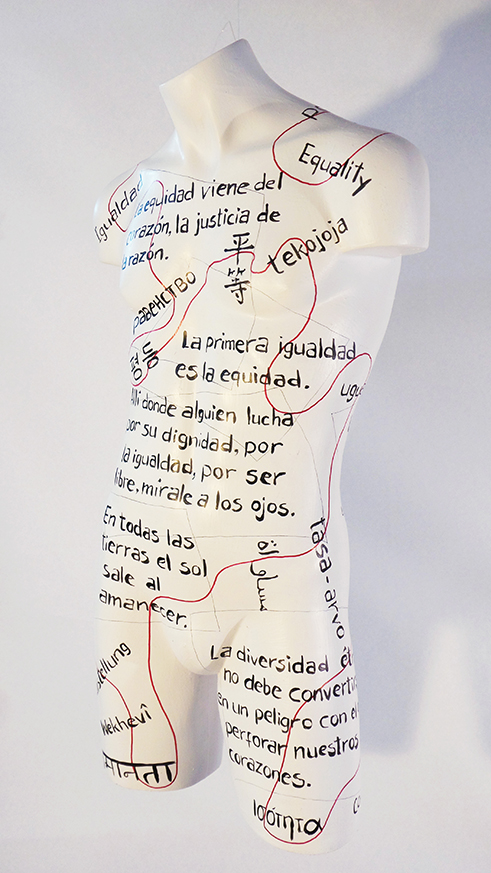 Equality
Igualdad
La equidad viene del
corazón, la justicia de
la razón.
平等
tekojoja
равенство
평등
La primera igualdad
es la equidad.
Allí donde alguien lucha
por su dignidad, por
la igualdad, por ser
libre, mírale a los ojos.
En todas las
tierras el sol
sale al
amanecer.
مساواة
tasa-arvo
La diversidad ét
no debe converti
en un peligro con
perforar nuestros
corazones.
stellung
Wekhevî
मानता
ισότητα